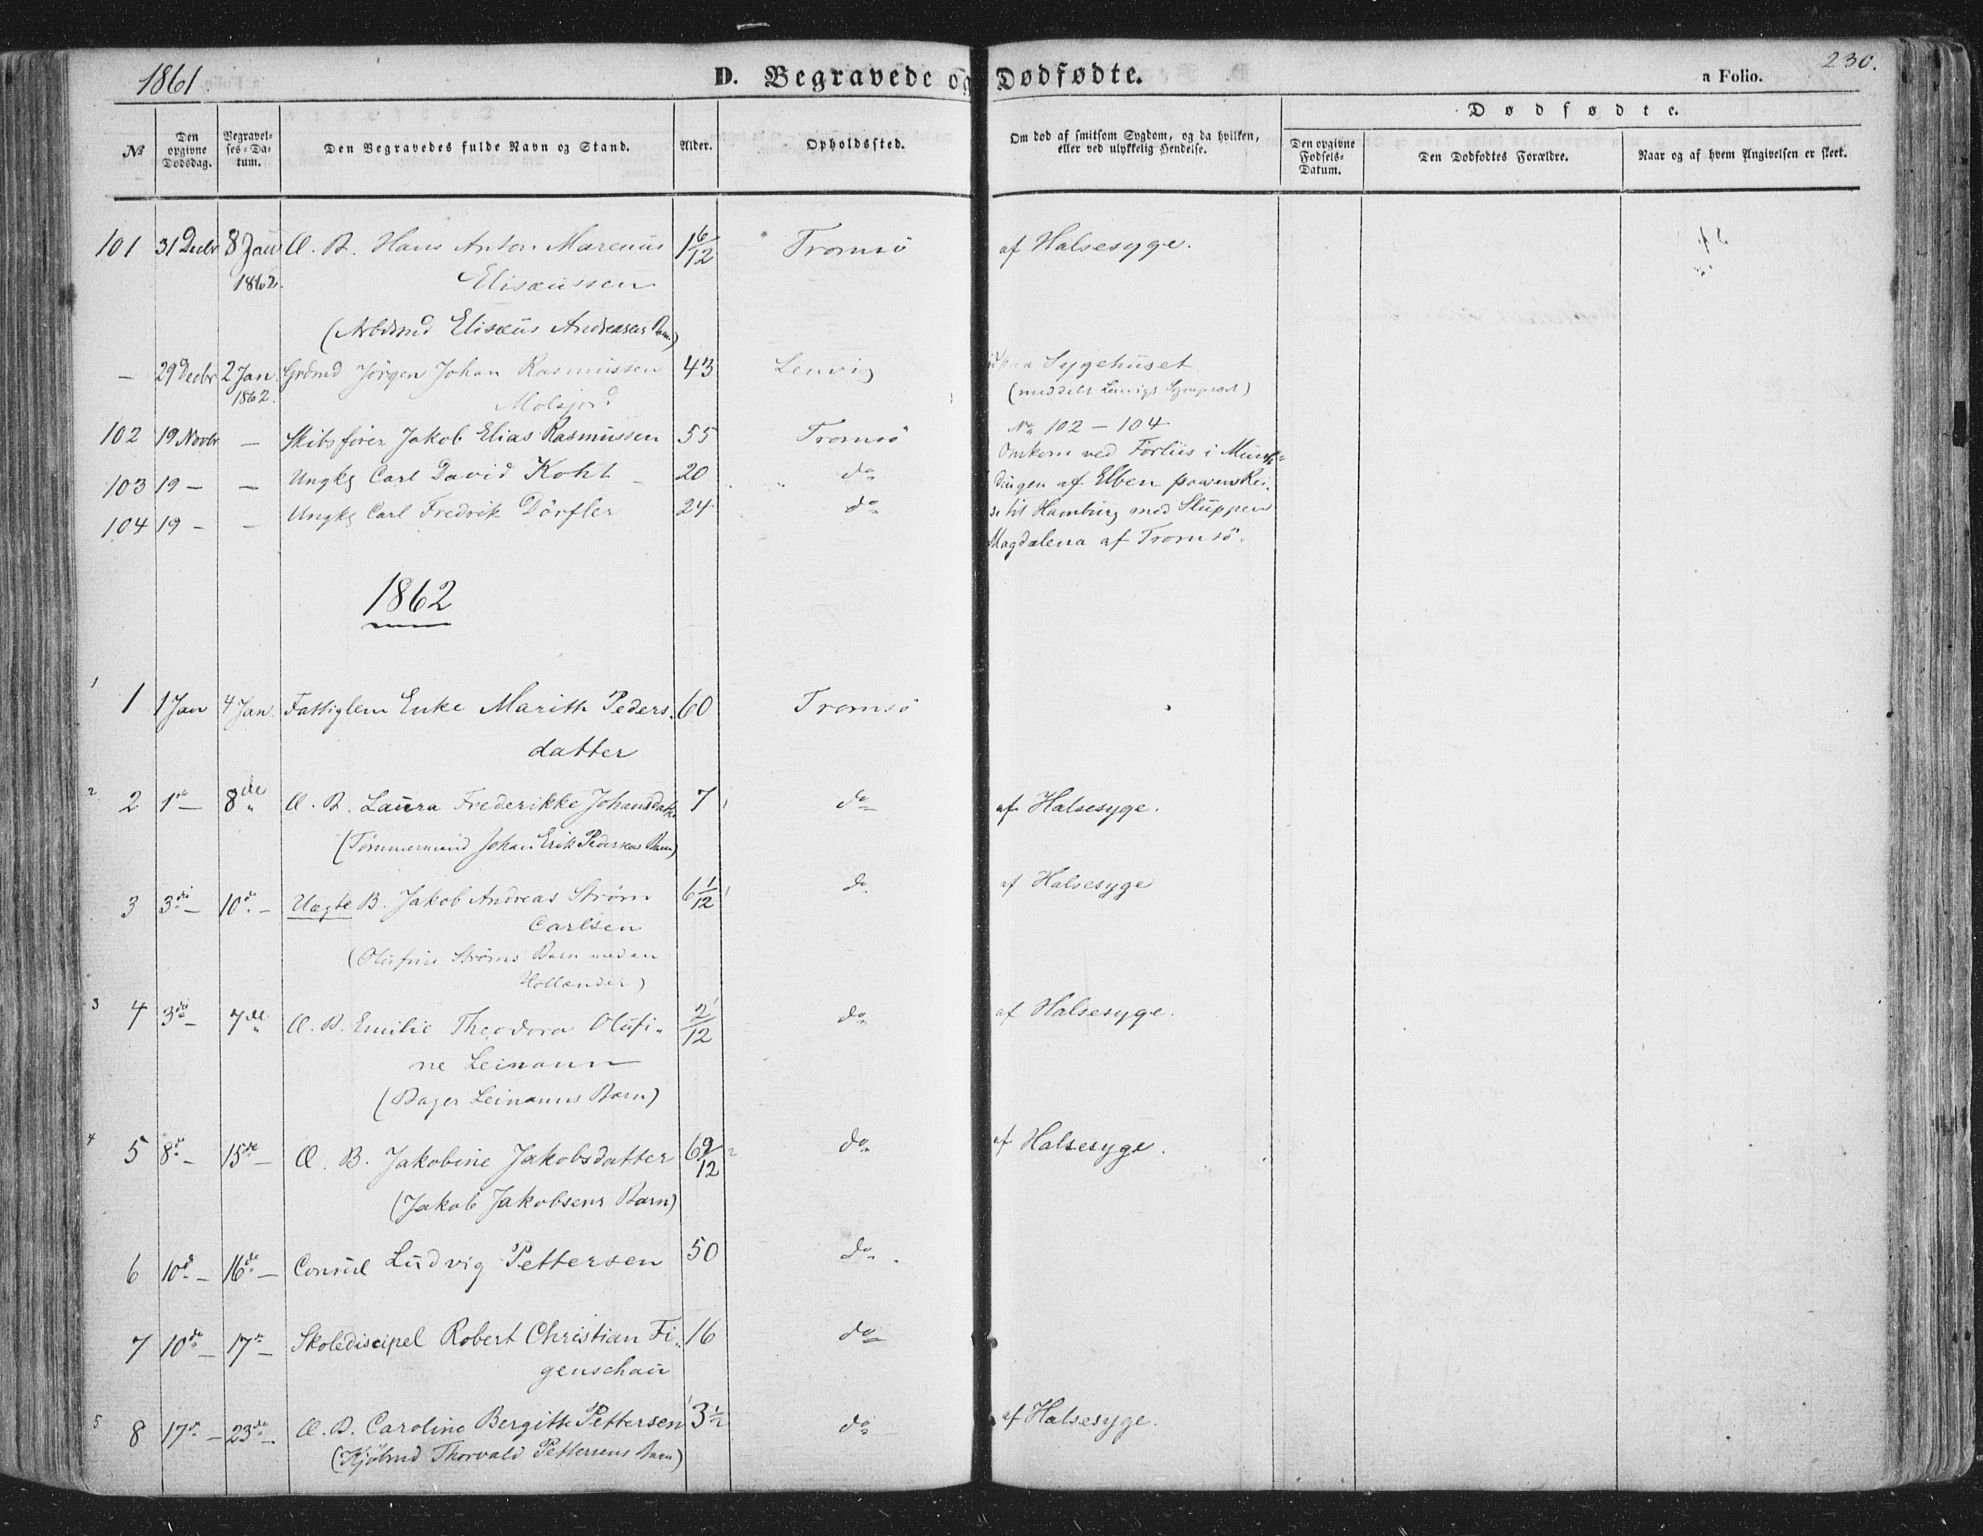 1861 D. Begravede og Dødfødte. a Folio. 230.
Dødfødte.
№ Den opgivne Dødsdag. Begravelses-Datum. Den Begravedes fulde Navn og Stand. Alder. Opholdssted. Om død af smitsom Sygdom, og da hvilken, eller ved ulykkelig Hendelse. Den opgivne Fødsels-Datum. Den Dødfødtes Forældre. Naar og af hvem Angivelsen er skeet.
101 31 Decbr 8 Jan Æ. B. Hans Anton Marenius 1 6/12 Tromsö af Halsesyge.
1862. Elisæussen
(Arbdsmd Elisæus Andreasens Barn)
— 29 Decbr 2 Jan Grdmd Jörgen Johan Rasmussen 43 Lenvig paa Sygehuset
1862. (meddelt Lenvigs Sognepræst)
102 19 Novbr — Skibsfører Jakob Elias Rasmussen 55 Tromsö No 102 – 104
Omkom ved Forliis i Mun-
103 19 — — Ungkg Carl David Koht 20 do dingen af Elben paa en Rei-
104 19 — — Ungkg Carl Fredrik Dörfler 24 do se til Hamburg med Sluppen
Magdalena af Tromsö.
1862
1 1 1 Jan 4 Jan. Fattiglem Enke Marith Peders- 60 Tromsö
datter
2 2 1de — 8de Æ. B. Laura Frederikke Johansdatt. 7 do af Halsesyge.
(Tömmermand Johan Erik Pedersens Barn)
3 3di — 10de — Uægte B. Jakob Andreas Strøm 6 1/12 do af Halsesyge
Carlsen
(Olufine Strøms Barn med en
Hollænder)
3 4 3di — 7de Æ. B. Emilie Theodora Olufi- 2/12 do af Halsesyge.
ne Leinann
(Bager Leinanns Barn)
4 5 8de — 15de — Æ. B. Jakobine Jakobsdatter 6 9/12 do af Halsesyge.
(Jakob Jakobsens Barn)
6 10de — 16de — Consul Ludvig Pettersen 50 do
7 10de — 17de — Skolediscipel Robert Christian Fi- 16 do
genschau
5 8 17de — 23de — Æ. B. Caroline Bergitte Pettersen 3 1/2 do af Halsesyge.
(Kjöbmd Thorvald Pettersens Barn)